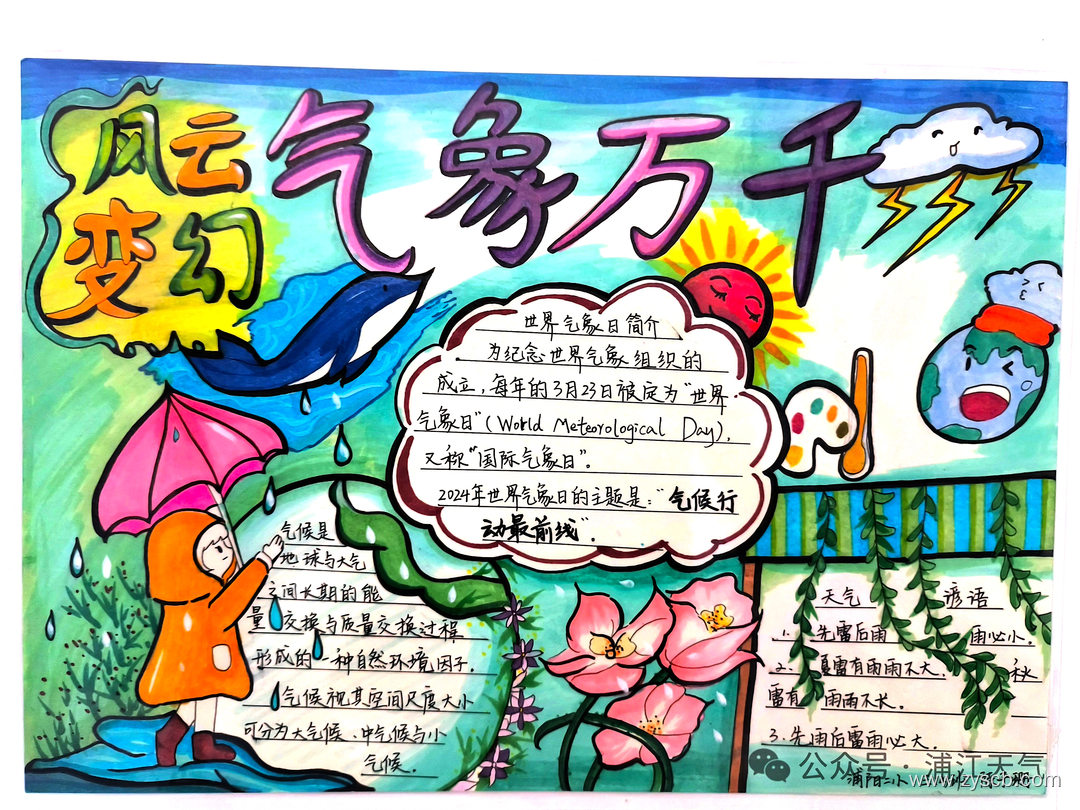 风云
变幻
气象万千
世界气象日简介
为纪念世界气象组织的
成立,每年的3月23日被定为“世界
气象日”(World Meteorological Day),
又称“国际气象日”。
2024年世界气象日的主题是:“气候行
动最前线”.
气候是
地球与大气
之间长期的能
量交换与质量交换过程
形成的一种自然环境因子.
气候视其空间尺度大小
可分为大气候、中气候与小
气候.
天气 谚语
1. 先雷后雨 雨必小.
2、夏雷有雨雨不大. 秋
雷有 雨雨不长.
3.先雨后雷雨必大.
浦阳二小
公众号·浦江天气
www.zyscb.com